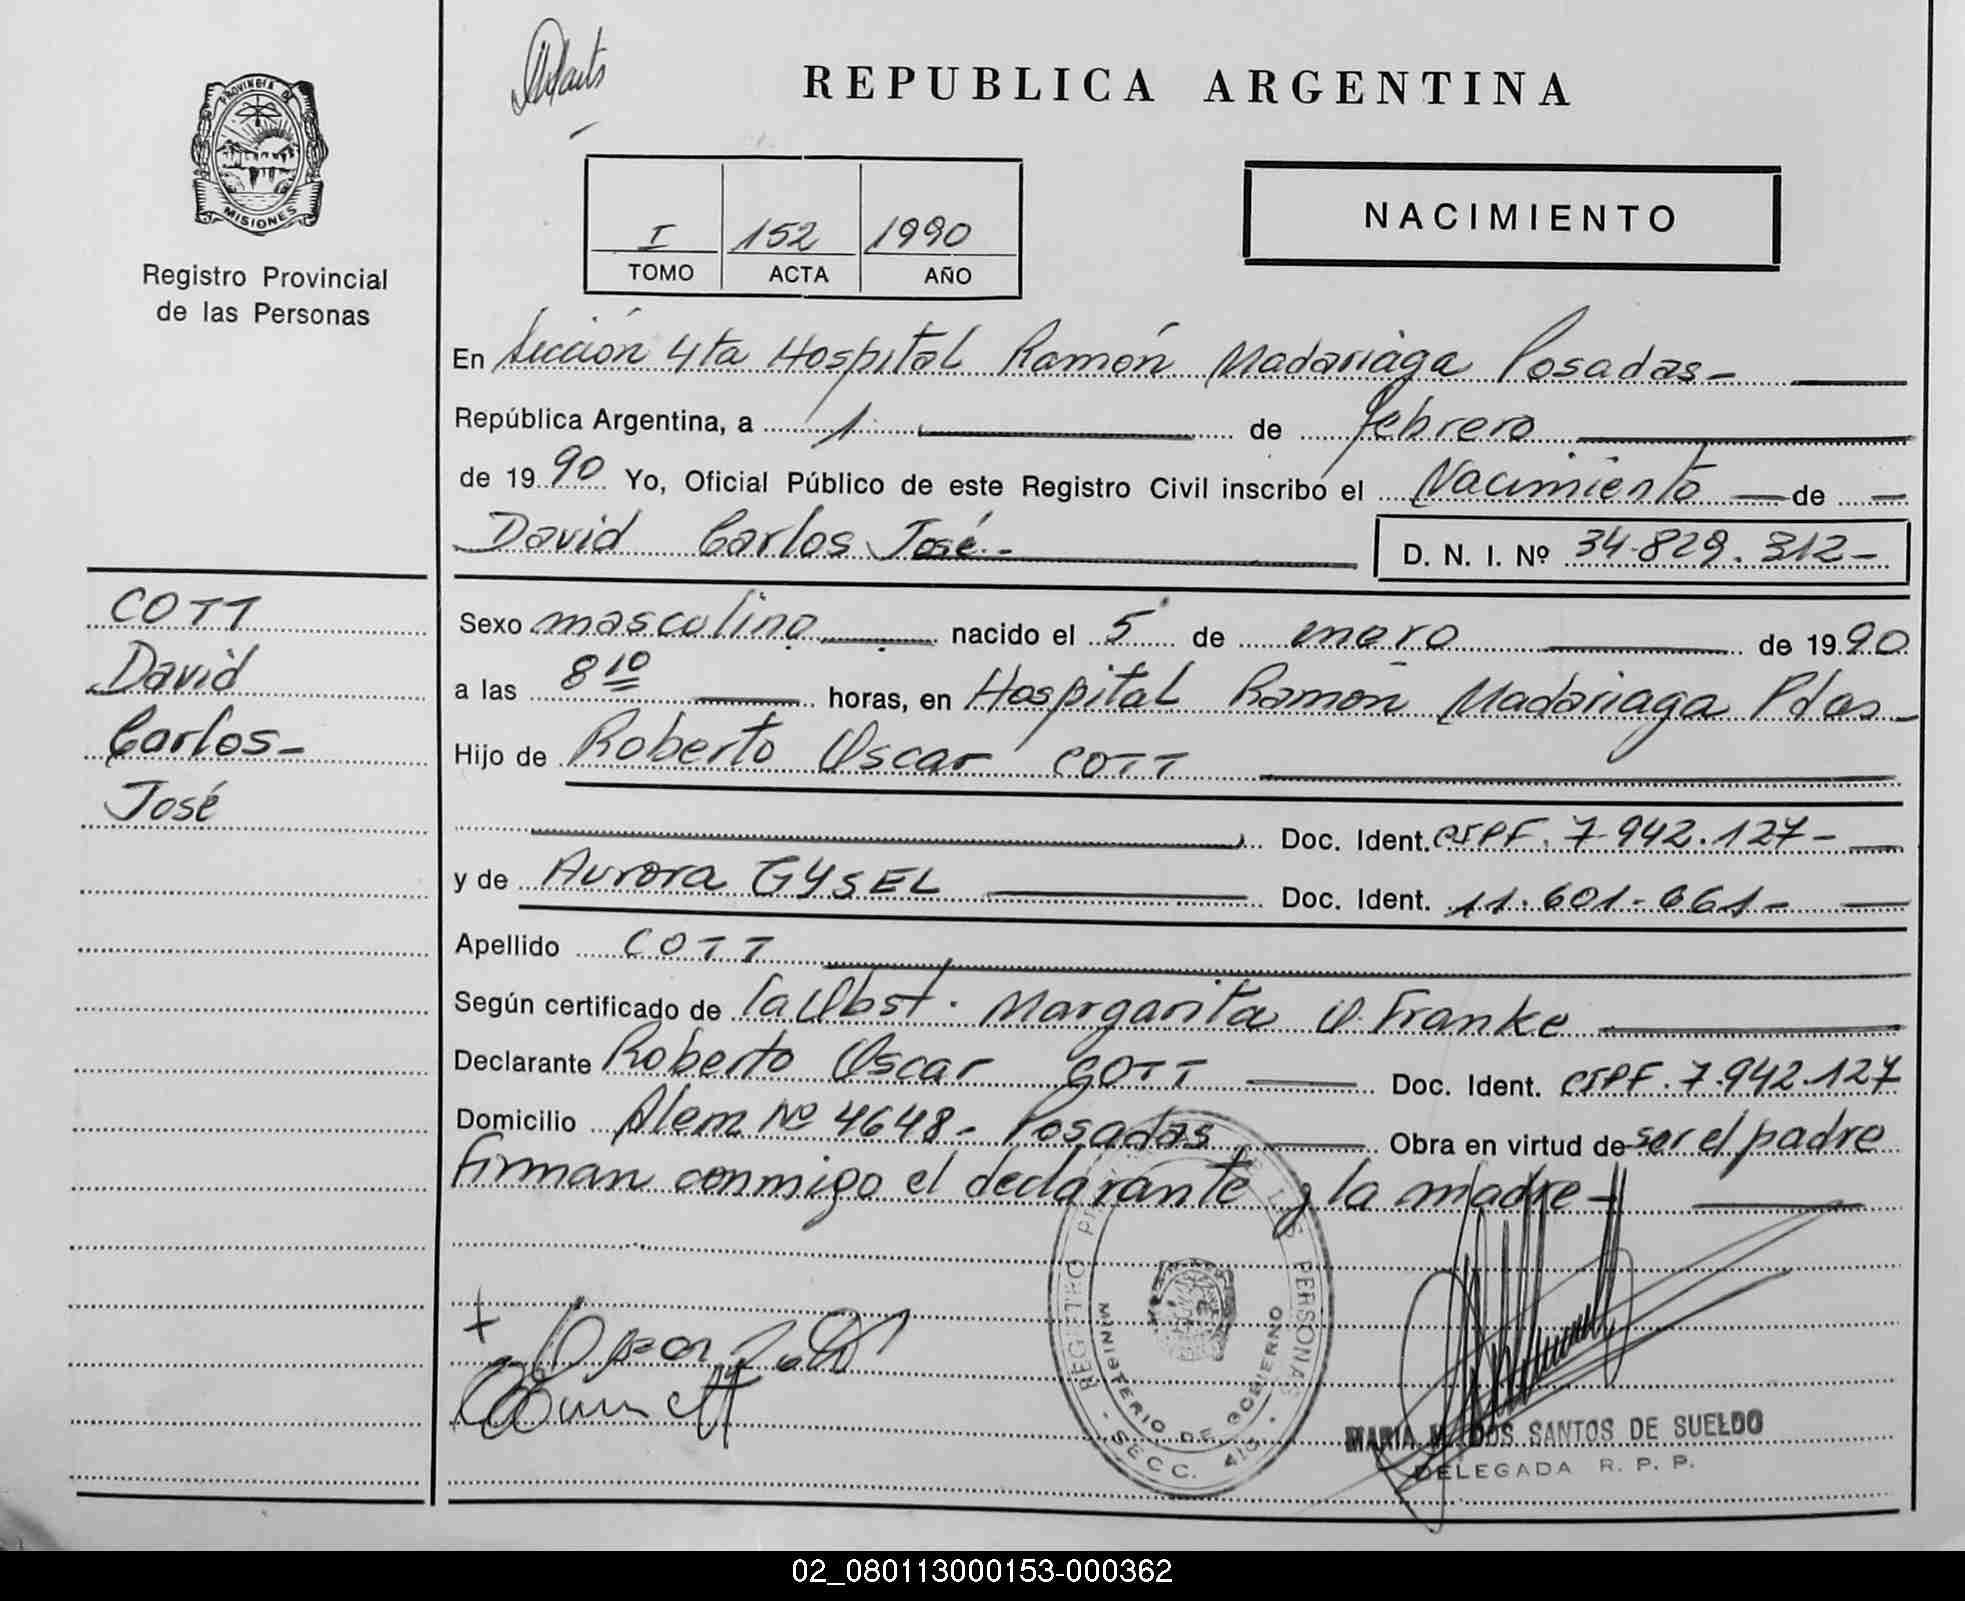 REPUBLICA ARGENTINA
PROVINCIA DE
MISIONES
Registro Provincial
de las Personas
I 152 1990
TOMO ACTA AÑO
NACIMIENTO
En Sección 4ta Hospital Ramón Madariaga Posadas-
República Argentina, a 1 de febrero
de 1990 Yo, Oficial Público de este Registro Civil inscribo el Nacimiento de
David Carlos José- D. N. I. Nº 34.829.312-
COTT
David
Carlos-
José
Sexo masculino nacido el 5 de enero de 1990
a las 8 10 horas, en Hospital Ramón Madariaga Pdas-
Hijo de Roberto Oscar COTT
Doc. Ident. CIPF. 7.942.127-
y de Aurora GYSEL Doc. Ident. 11.601.661-
Apellido COTT
Según certificado de la Obst. Margarita O. Franke
Declarante Roberto Oscar COTT Doc. Ident. CIPF. 7.942.127
Domicilio Alem Nº 4648- Posadas Obra en virtud de ser el padre
Firman conmigo el declarante y la madre-
REGISTRO PROVINCIAL DE LAS PERSONAS
MINISTERIO DE GOBIERNO
- SECC. 4ta -
MARIA M. DOS SANTOS DE SUELDO
DELEGADA R. P. P.
02_080113000153-000362